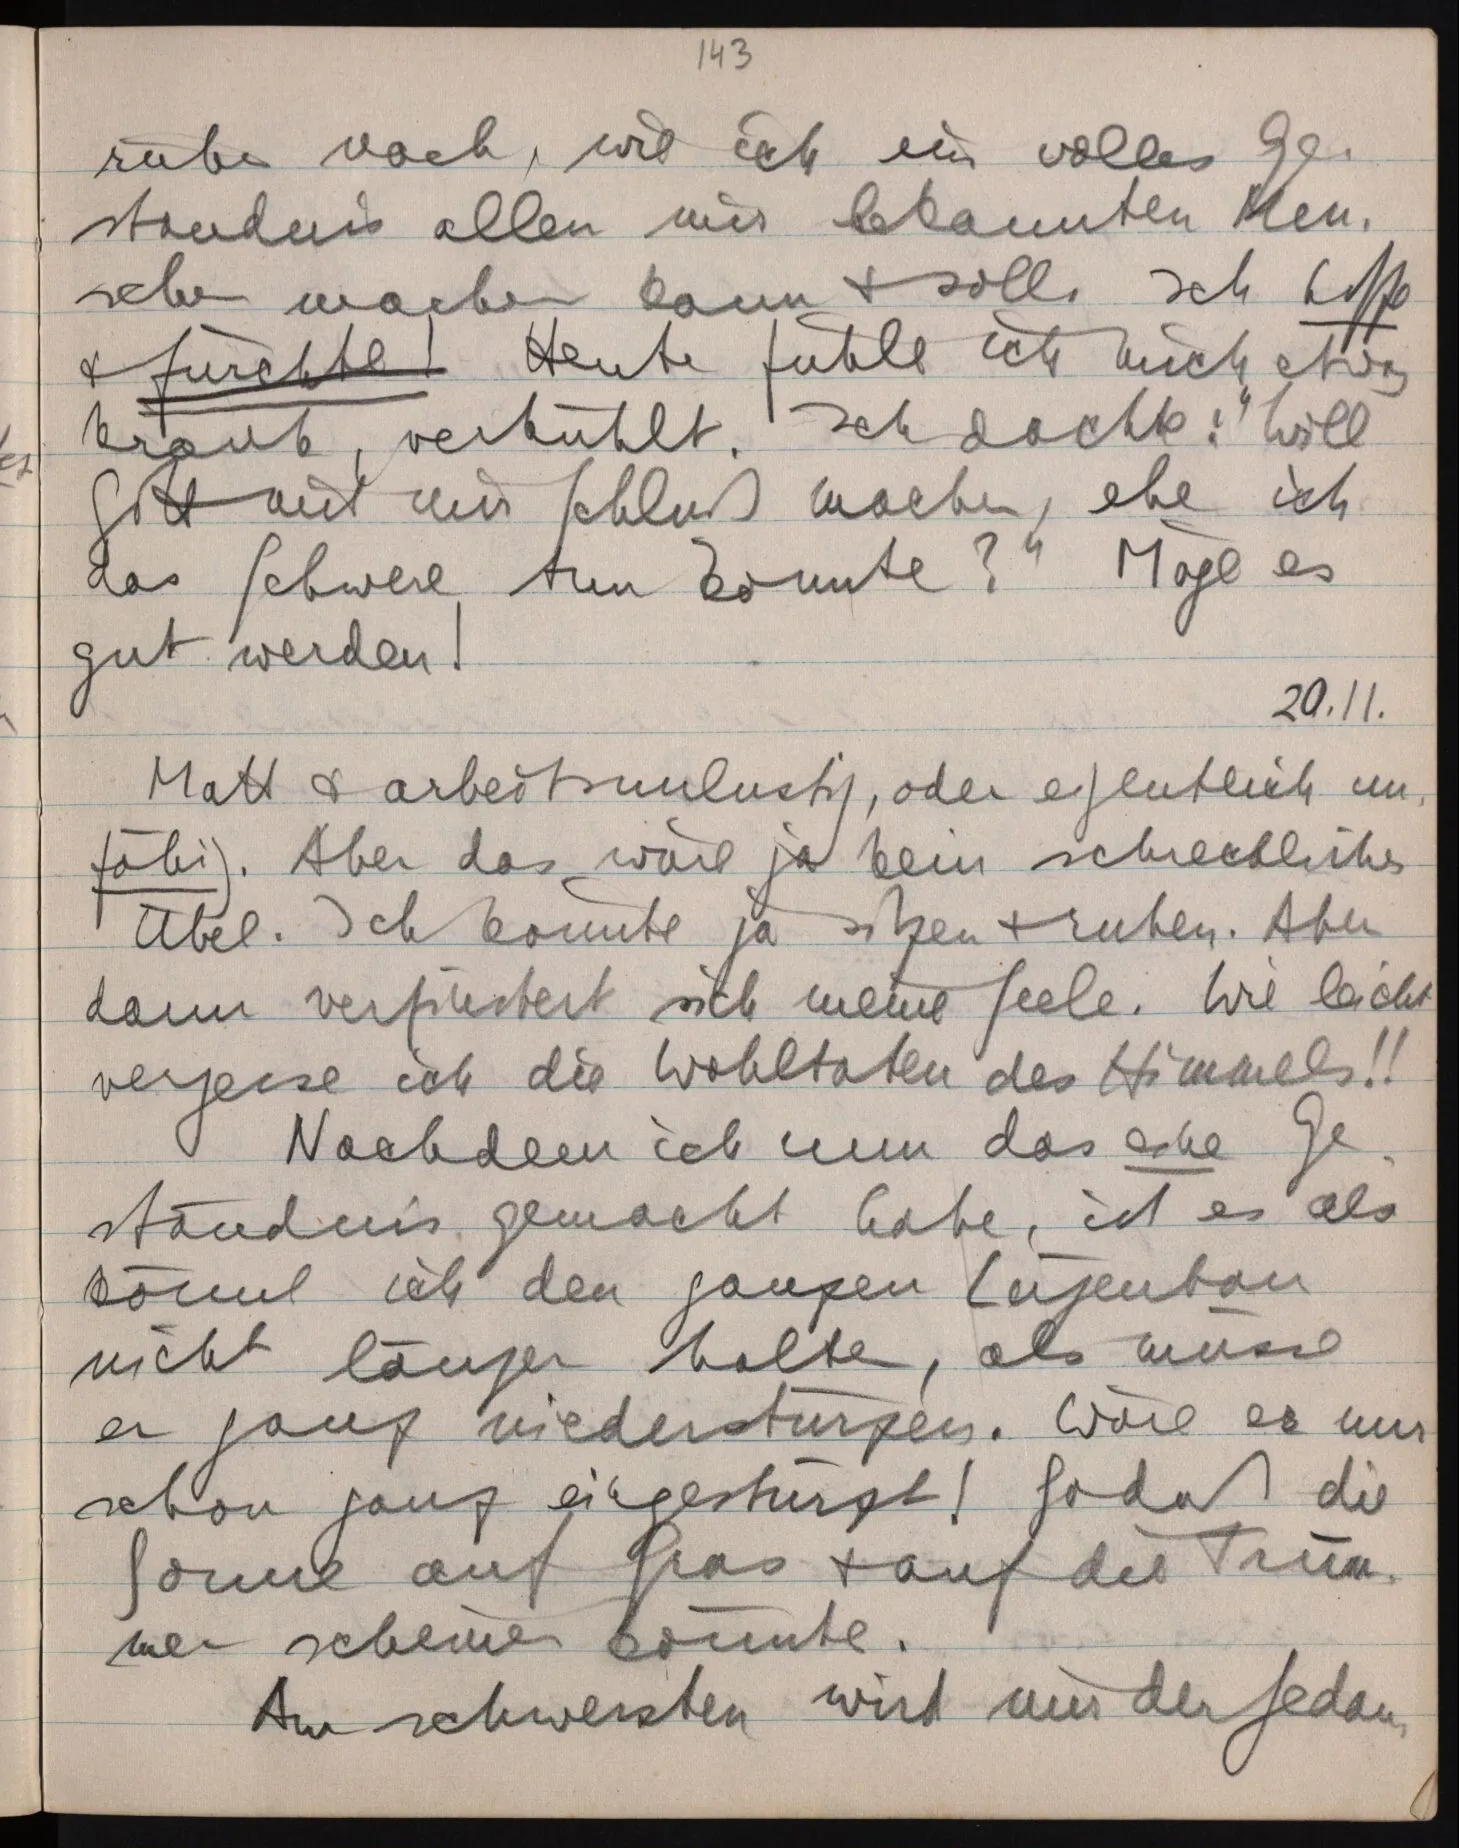 143
rüber nach, wie ich ein volles Ge-
ständnis allen mir bekannten Men-
schen machen kann & soll. Ich hoffe
& fürchte! Heute fühle ich mich etwas
krank, verkühlt. Ich dachte: "Will
Gott mit mir Schluß machen, ehe ich
das Schwere tun konnte?" Möge es
gut werden!
20.11.
Matt & arbeitsunlustig, oder eigentlich un-
fähig. Aber das wäre ja kein schreckliches
Übel. Ich könnte ja sitzen & ruhen. Aber
dann verfinstert sich meine Seele. Wie leicht
vergesse ich die Wohltaten des Himmels!!
Nachdem ich nun das eine Ge-
ständnis gemacht habe, ist es als
könne ich den ganzen Lügenbau
nicht länger halten, als müsse
er ganz niederstürzen. Wäre er nur
schon ganz eingestürzt! Sodaß die
Sonne auf Gras & auf die Trüm-
mer scheinen könnte.
Am schwersten wird mir der Gedan-